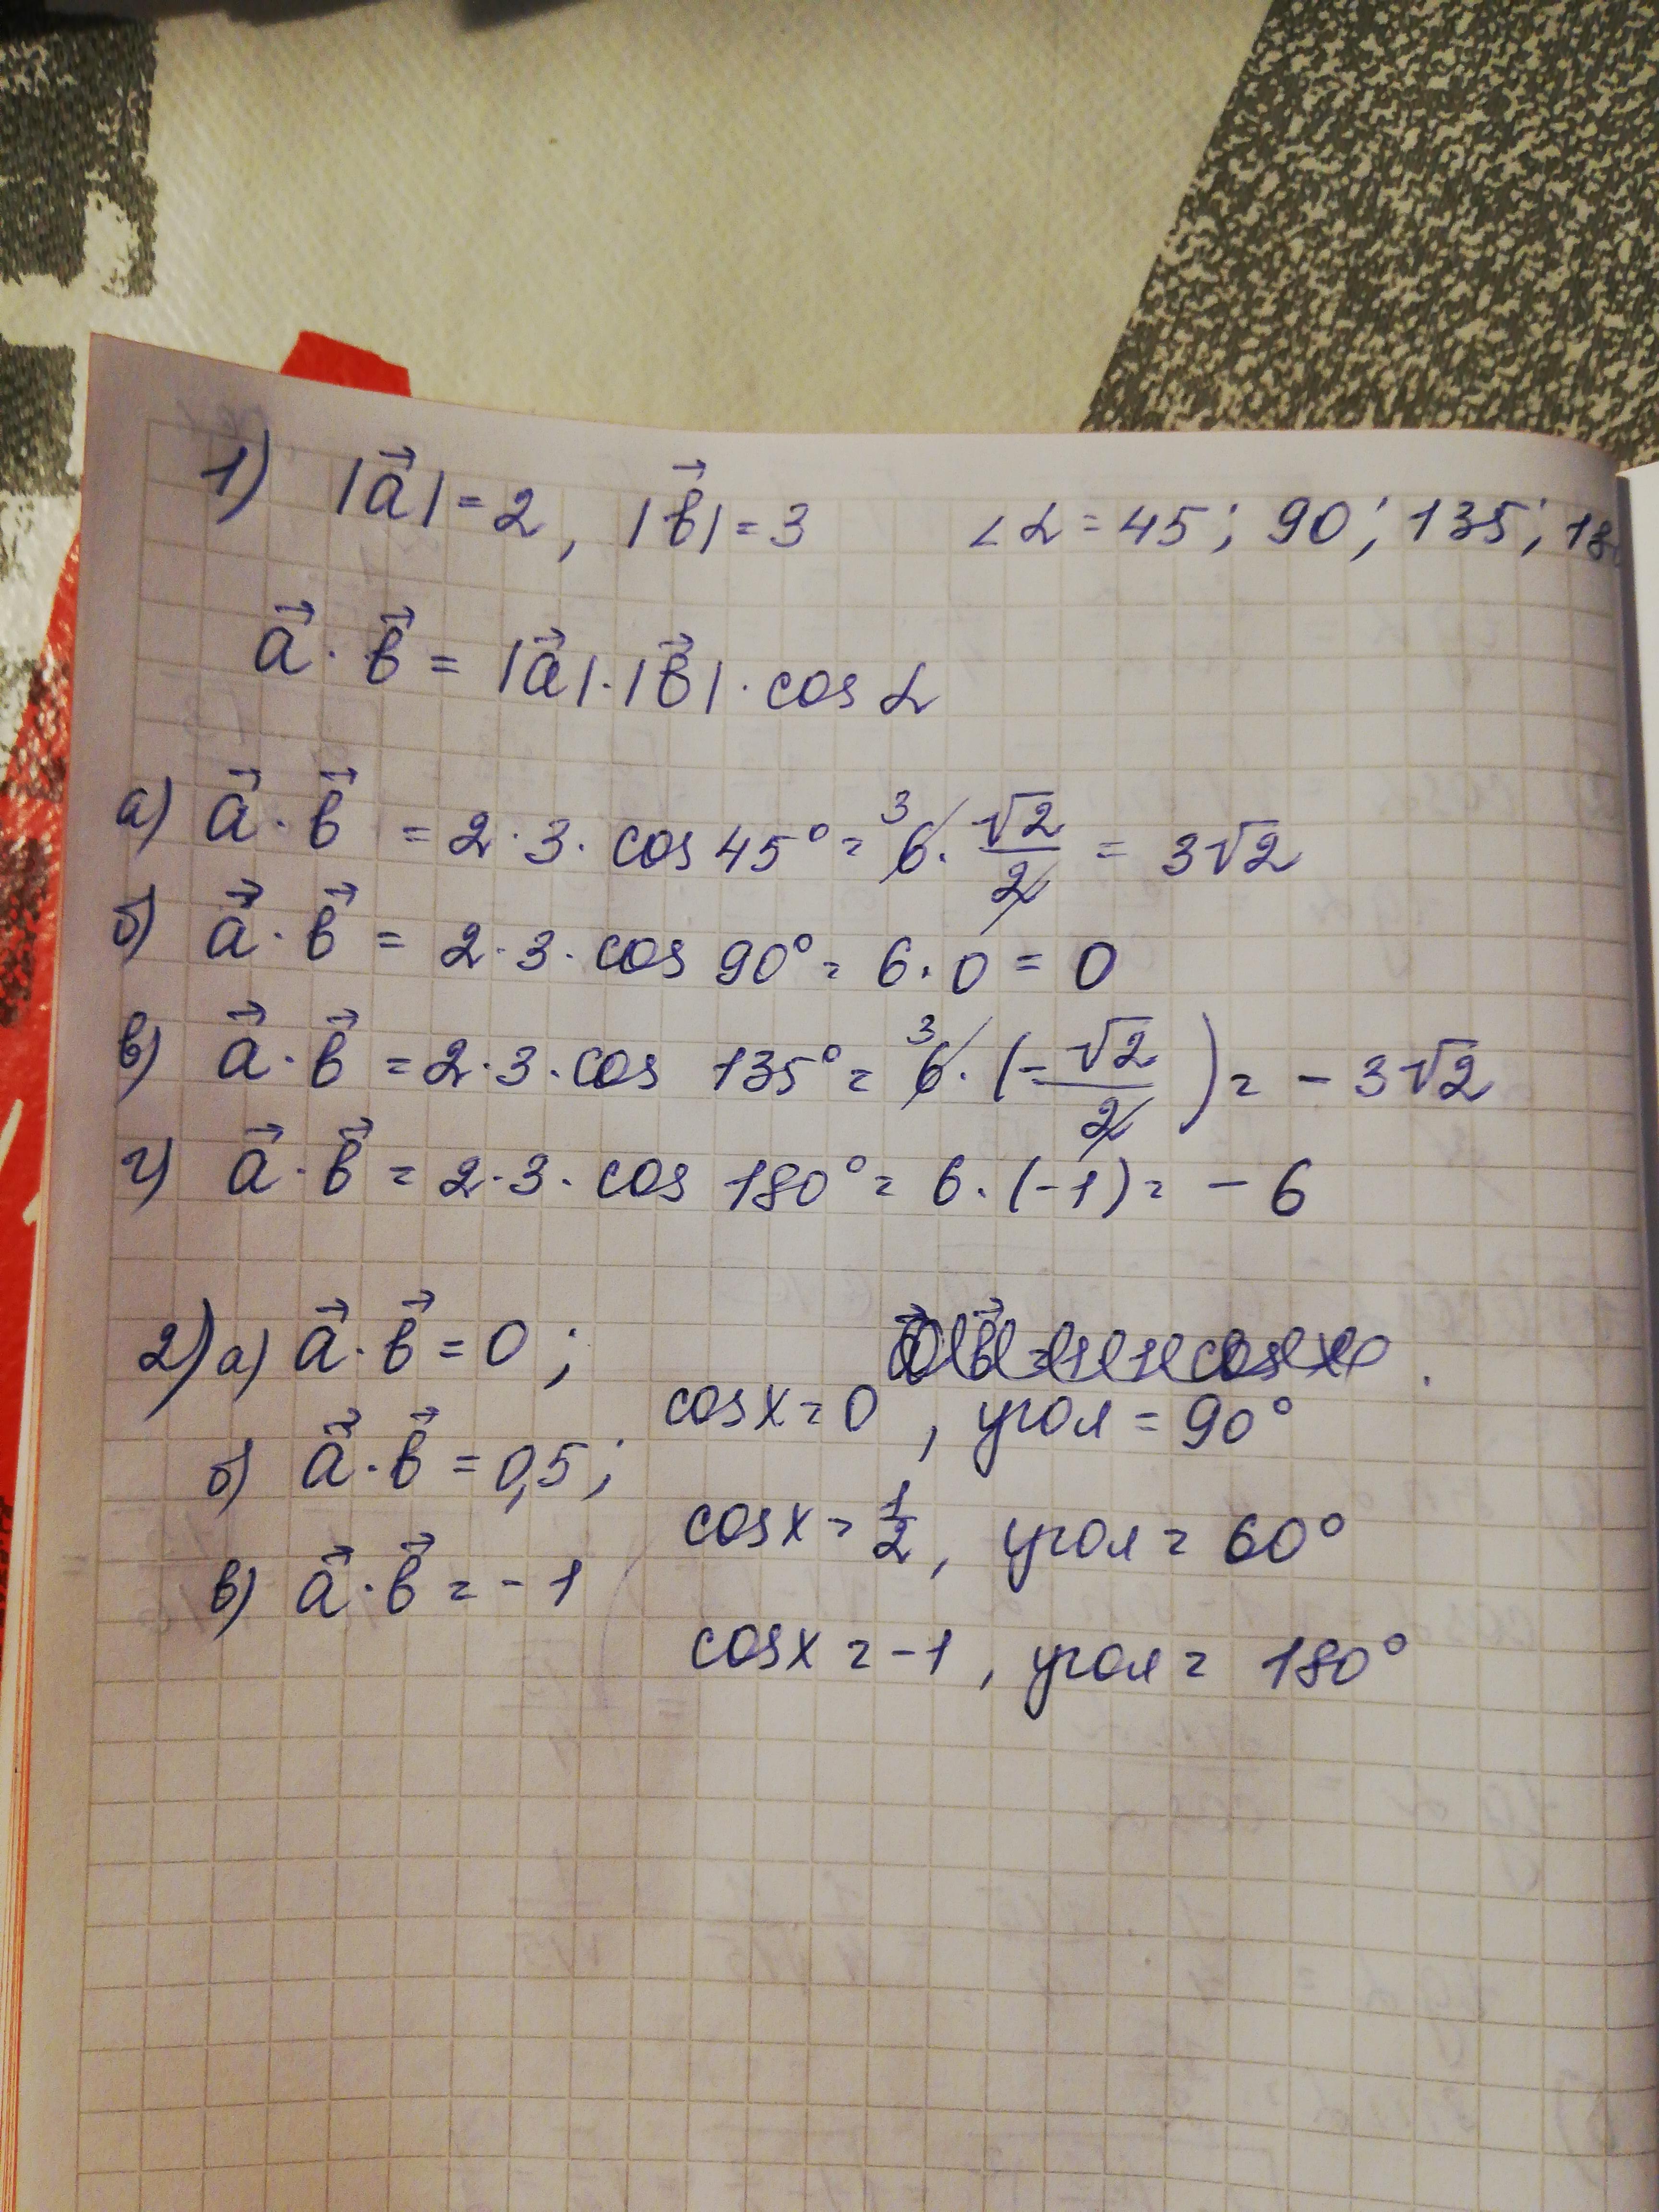 1) |a⃗| = 2, |b⃗| = 3 ∠α = 45; 90; 135; 180
a⃗ · b⃗ = |a⃗| · |b⃗| · cos α
а) a⃗ · b⃗ = 2 · 3 · cos 45° = 6 · √2/2 = 3√2
б) a⃗ · b⃗ = 2 · 3 · cos 90° = 6 · 0 = 0
в) a⃗ · b⃗ = 2 · 3 · cos 135° = 6 · (-√2/2) = -3√2
г) a⃗ · b⃗ = 2 · 3 · cos 180° = 6 · (-1) = -6
2) а) a⃗ · b⃗ = 0;
cos x = 0, угол = 90°
б) a⃗ · b⃗ = 0,5;
cos x = 1/2, угол = 60°
в) a⃗ · b⃗ = -1
cos x = -1, угол = 180°